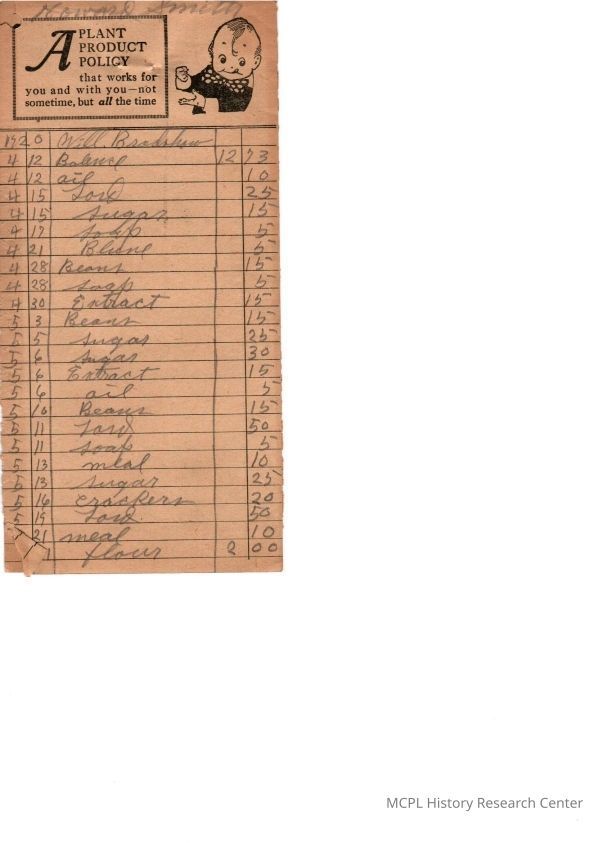 Howard Smith
A PLANT
PRODUCT
POLICY
that works for
you and with you—not
sometime, but all the time
1920 Will Bradshaw
4 12 Balance 12 73
4 12 oil 10
4 15 Lard 25
4 15 Sugar 15
4 17 Soap 5
4 21 Blune 5
4 28 Beans 15
4 28 Soap 5
4 30 Extract 15
5 3 Beans 15
5 5 Sugar 25
5 6 Sugar 30
5 6 Extract 15
5 6 oil 5
5 10 Beans 15
5 11 Lard 50
5 11 Soap 5
5 13 meal 10
5 13 Sugar 25
5 16 Crackers 20
5 19 Lard 50
21 meal 10
1 flour 2 00
MCPL History Research Center